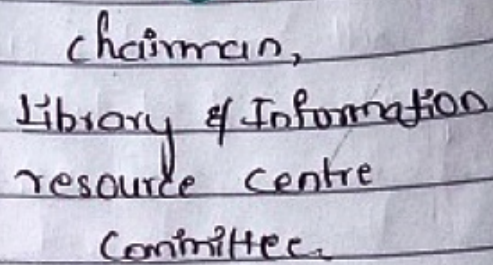 chairman,
Library & Information
resource centre
Committee.